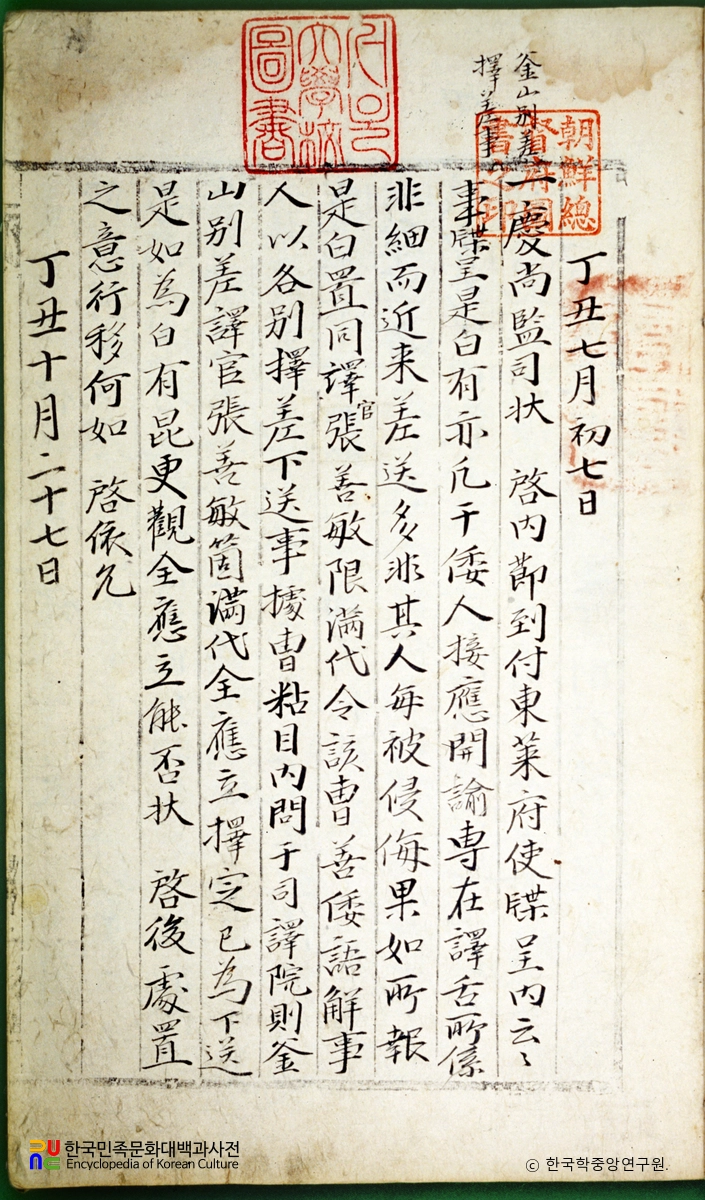 釜山別差
擇差事
朝鮮總
督府圖
書之印
圖書
丁丑七月初七日
一慶尚監司狀 啓內節到付東萊府使牒呈內云々
事牒呈是白有亦凡干倭人接應開諭專在譯舌所係
非細而近来差送多非其人每被侵侮果如所報
是白置同譯官張善敏限滿代令該曺善倭語解事
人以各別擇差下送事據曺粘目內問于司譯院則釜
山別差譯官張善敏箇滿代全應立擇定已為下送
是如為白有昆更觀全應立能否狀 啓後處置
之意行移何如 啓依允
丁丑十月二十七日
한국민족문화대백과사전
Encyclopedia of Korean Culture
ⓒ 한국학중앙연구원.